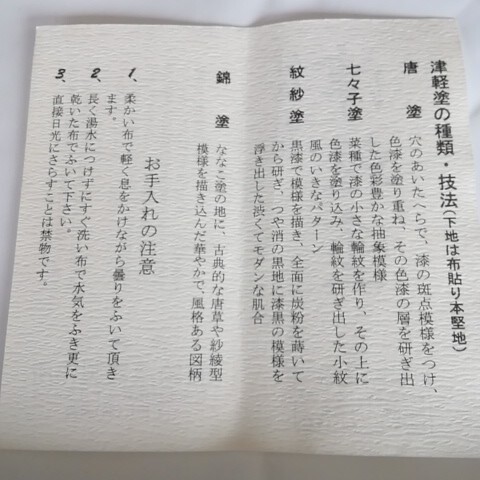 津軽塗の種類・技法(下地は布貼り本堅地)
唐塗 穴のあいたへらで、漆の斑点模様をつけ、
色漆を塗り重ね、その色漆の層を研ぎ出
した色彩豊かな抽象模様
七々子塗 菜種で漆の小さな輪紋を作り、その上に
色漆を塗り込み、輪紋を研ぎ出した小紋
風のいきなパターン
紋紗塗 黒漆で模様を描き、全面に炭粉を蒔いて
から研ぎ、つや消の黒地に漆黒の模様を
浮き出した渋くてモダンな肌合
錦塗 ななこ塗の地に、古典的な唐草や紗綾型
模様を描き込んだ華やかで、風格ある図柄
お手入れの注意
1. 柔かい布で軽く息をかけながら曇りをふいて頂き
ます。
2. 長く湯水につけずにすぐ洗い布で水気をふき更に
乾いた布でふいて下さい。
3. 直接日光にさらすことは禁物です。